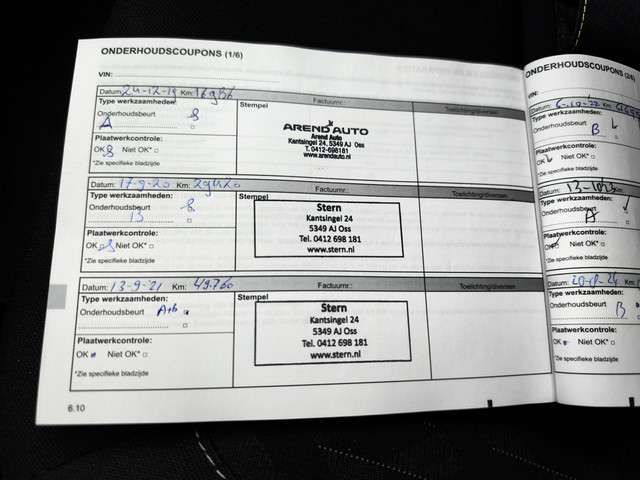 ONDERHOUDSCOUPONS (1/6)
VIN:
Datum: 24-12-19 Km:
Factuurnr.:
Toelichting/diversen:
Type werkzaamheden:
Onderhoudsbeurt
A
Plaatwerkcontrole:
OK Niet OK*
*Zie specifieke bladzijde
Stempel
AREND AUTO
Arend Auto
Kantsingel 24, 5349 AJ Oss
T. 0412-698181
www.arendauto.nl
Datum: 17-9-20 Km: 29420
Factuurnr.:
Toelichting/diversen:
Type werkzaamheden:
Onderhoudsbeurt
B
Plaatwerkcontrole:
OK Niet OK*
*Zie specifieke bladzijde
Stempel
Stern
Kantsingel 24
5349 AJ Oss
Tel. 0412 698 181
www.stern.nl
Datum: 13-9-21 Km: 49.760
Factuurnr.:
Toelichting/diversen:
Type werkzaamheden:
Onderhoudsbeurt A+b
Plaatwerkcontrole:
OK Niet OK*
*Zie specifieke bladzijde
Stempel
Stern
Kantsingel 24
5349 AJ Oss
Tel. 0412 698 181
www.stern.nl
6.10
ONDERHOUDSCOUPONS (2/6)
VIN:
Datum: 6-10-22 Km:
Type werkzaamheden:
Onderhoudsbeurt
B
Plaatwerkcontrole:
OK Niet OK*
*Zie specifieke bladzijde
Type werkzaamheden:
Onderhoudsbeurt
A
Plaatwerkcontrole:
OK Niet OK*
*Zie specifieke bladzijde
Type werkzaamheden:
Onderhoudsbeurt
B
Plaatwerkcontrole:
OK Niet OK*
*Zie specifieke bladzijde